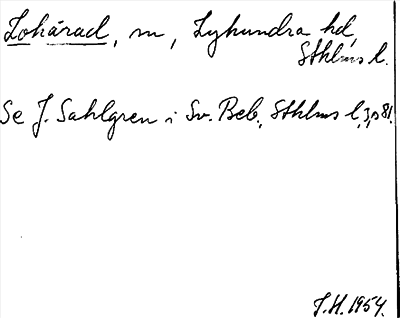 Lohärad, sn, Lyhundra hd,
Sthlms l.
Se J. Sahlgren i Sv. Beb., Sthlms l, 3, s 81.
J.H. 1954.